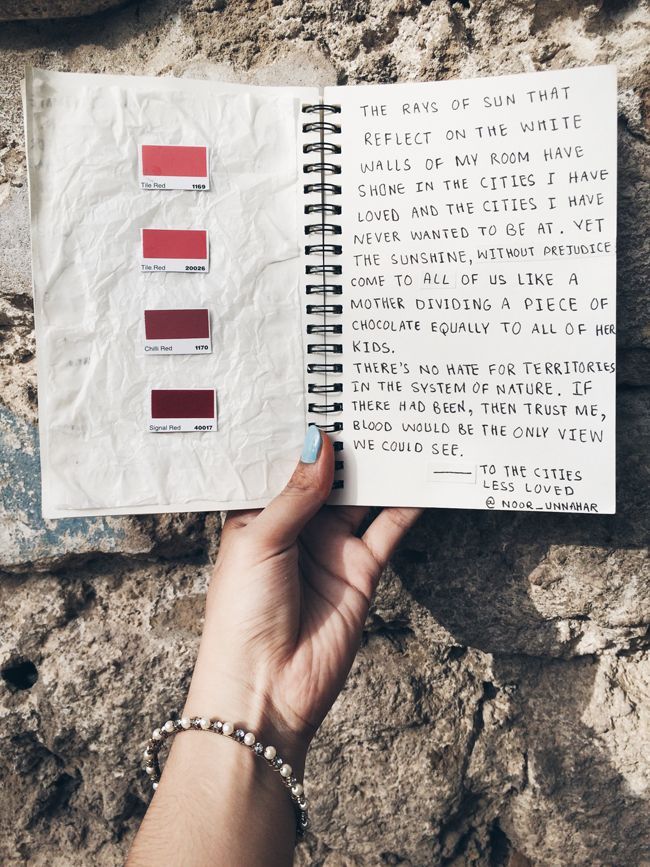 Tile Red 1169
Tile Red 20026
Chilli Red 1170
Signal Red 40017
THE RAYS OF SUN THAT
REFLECT ON THE WHITE
WALLS OF MY ROOM HAVE
SHONE IN THE CITIES I HAVE
LOVED AND THE CITIES I HAVE
NEVER WANTED TO BE AT. YET
THE SUNSHINE, WITHOUT PREJUDICE
COME TO ALL OF US LIKE A
MOTHER DIVIDING A PIECE OF
CHOCOLATE EQUALLY TO ALL OF HER
KIDS.
THERE'S NO HATE FOR TERRITORIES
IN THE SYSTEM OF NATURE. IF
THERE HAD BEEN, THEN TRUST ME,
BLOOD WOULD BE THE ONLY VIEW
WE COULD SEE.
—— TO THE CITIES
LESS LOVED
@ NOOR_UNNAHAR